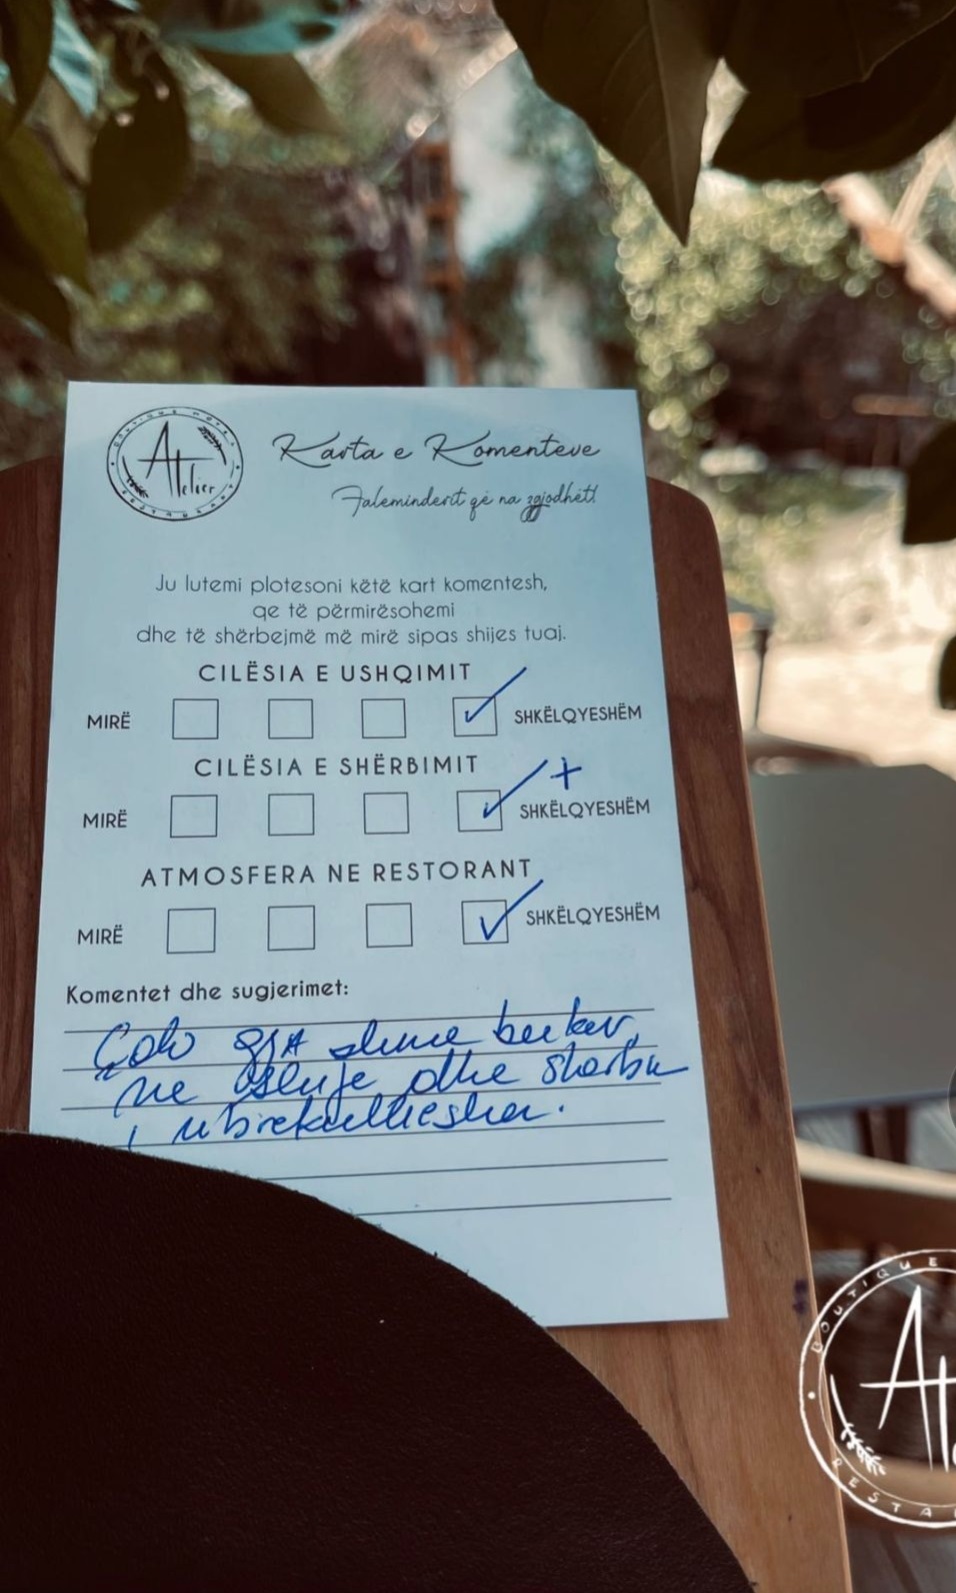 BOUTIQUE HOTEL
Atelier
RESTAURANT
Karta e Komenteve
Faleminderit që na zgjodhët!
Ju lutemi plotesoni këtë kart komentesh,
qe të përmirësohemi
dhe të shërbejmë më mirë sipas shijes tuaj.
CILËSIA E USHQIMIT
MIRË SHKËLQYESHËM
CILËSIA E SHËRBIMIT
+
MIRË SHKËLQYESHËM
ATMOSFERA NE RESTORANT
MIRË SHKËLQYESHËM
Komentet dhe sugjerimet:
Çdo gjA shume bukur,
ne dhe
i
BOUTIQUE
At
RESTA